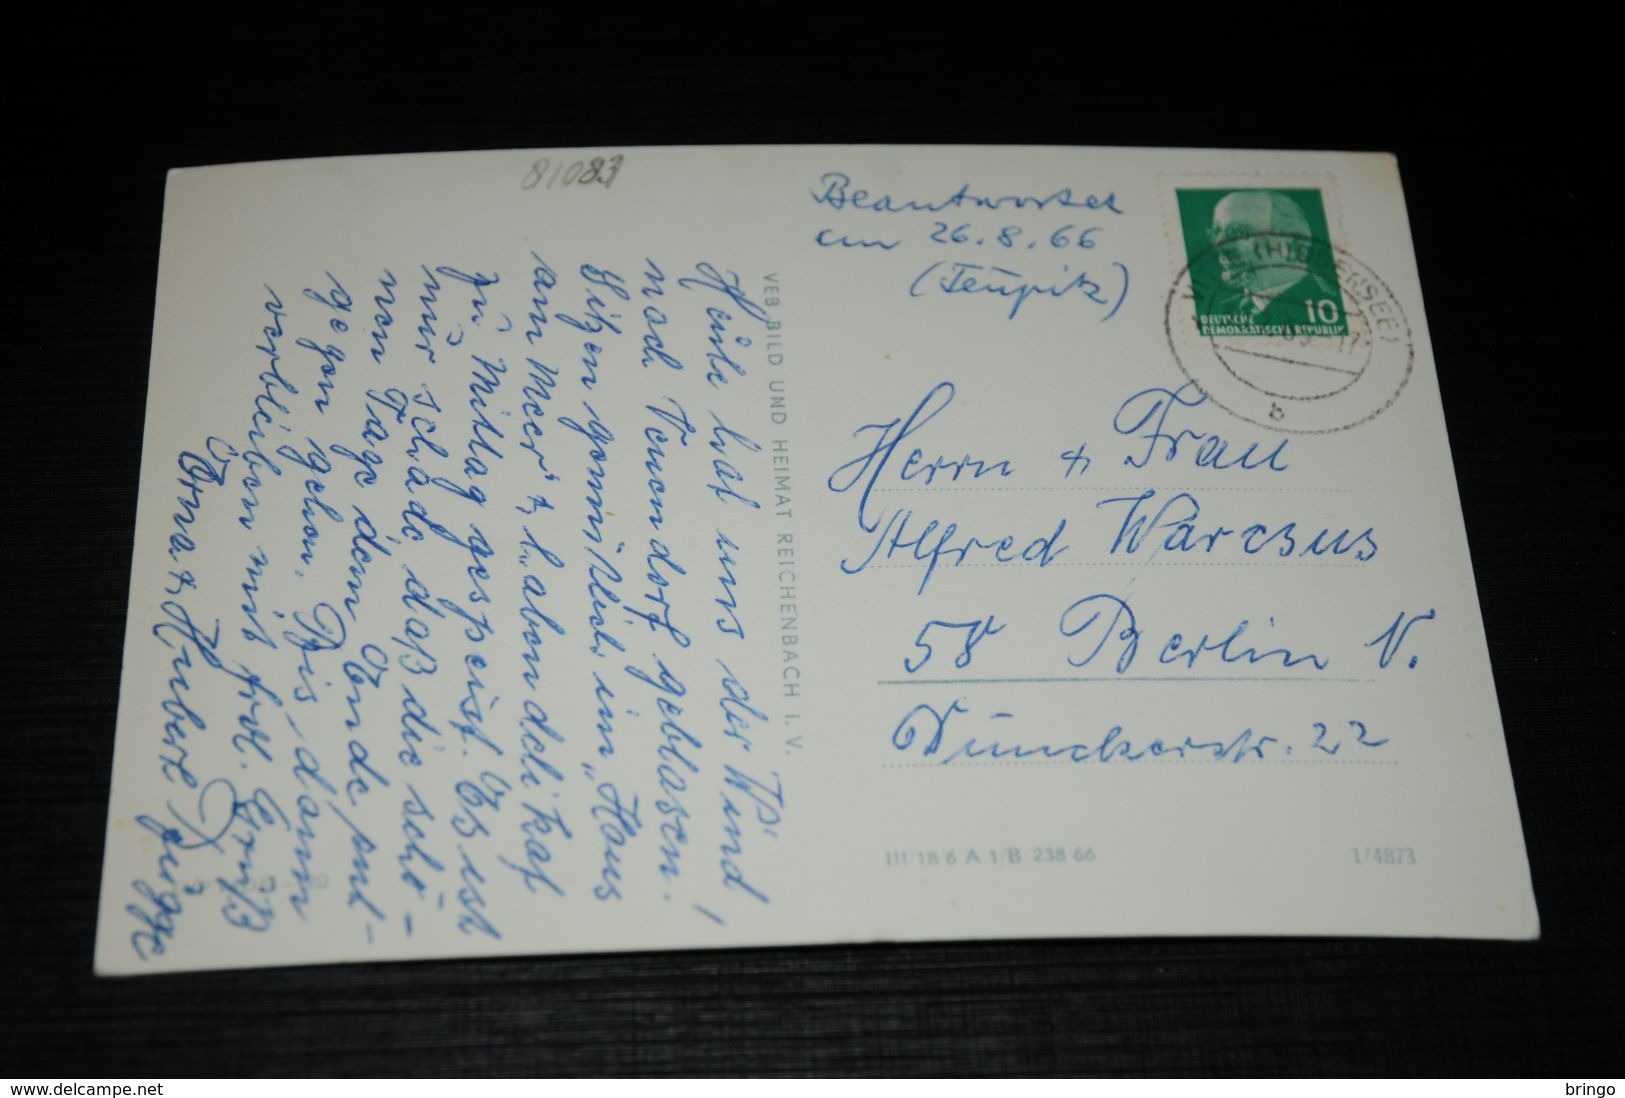 81083
Beantwortet
am 26.8.66
(Teupitz)
DEUTSCHE
DEMOKRATISCHE REPUBLIK
10
(HIDDENSEE)
b
Herrn & Frau
Alfred
58 Berlin N.
Dunckerstr. 22
III/18/6 A 1/B 238 66
1/4873
VEB BILD UND HEIMAT REICHENBACH I. V.
Heute hat uns der Wind
nach geblasen.
Sitzen gemütlich im „Haus
am Meer" & haben delikat
zu Mittag gespeist. Es ist
nur schade daß die schö-
nen Tage dem Ende ent-
gegen gehen. Bis dann
verbleiben mit frdl. Gruß
Erna & Hubert
www.delcampe.net
bringo